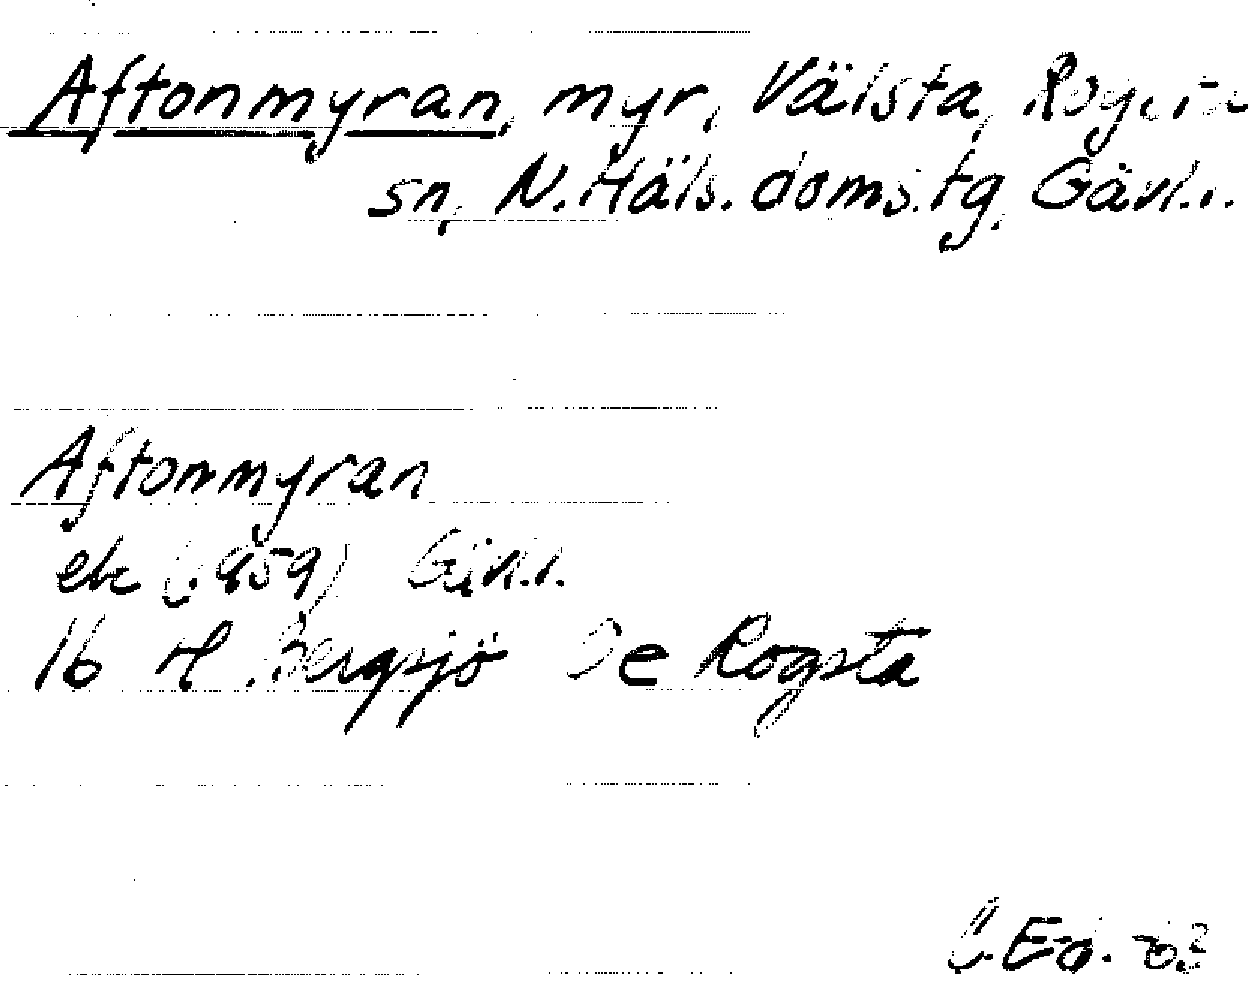 Aftonmyran, myr, Välsta, Rogsta
sn, N. Häls. doms.tg, Gävl. l.
Aftonmyran
ek (1959) Gävl. l.
16 H Bergsjö e Rogsta